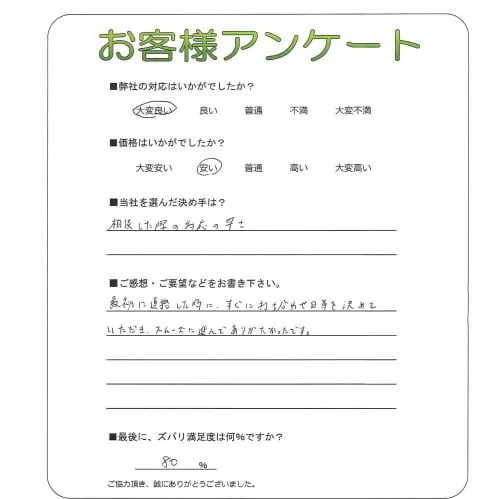 お客様アンケート
■弊社の対応はいかがでしたか？
大変良い 良い 普通 不満 大変不満
■価格はいかがでしたか？
大変安い 安い 普通 高い 大変高い
■当社を選んだ決め手は？
相談した際の対応の早さ
■ご感想・ご要望などをお書き下さい。
最初に連絡した時に、すぐに打ち合わせ日等を決めて
いただき、スムーズに進んでありがたかったです。
■最後に、ズバリ満足度は何％ですか？
80 ％
ご協力頂き、誠にありがとうございました。